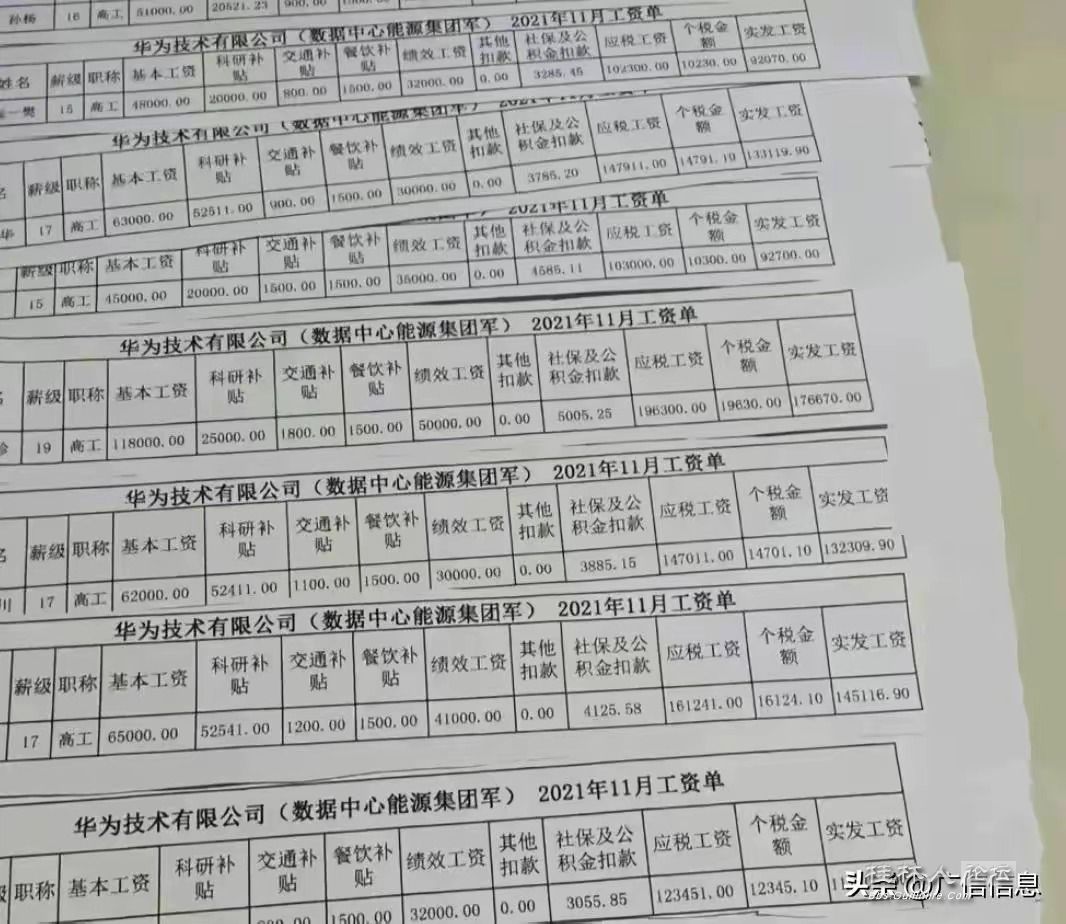 孙杨 16 高工 51000.00 20521.23 900.00
华为技术有限公司（数据中心能源集团军） 2021年11月工资单
姓名 薪级 职称 基本工资 科研补贴 交通补贴 餐饮补贴 绩效工资 其他扣款 社保及公积金扣款 应税工资 个税金额 实发工资
一樊 15 高工 48000.00 20000.00 800.00 1500.00 32000.00 0.00 3285.45 102300.00 10230.00 92070.00
华为技术有限公司（数据中心能源集团军） 2021年11月工资单
名 薪级 职称 基本工资 科研补贴 交通补贴 餐饮补贴 绩效工资 其他扣款 社保及公积金扣款 应税工资 个税金额 实发工资
华 17 高工 63000.00 52511.00 900.00 1500.00 30000.00 0.00 3785.20 147911.00 14791.10 133119.90
2021年11月工资单
薪级 职称 基本工资 科研补贴 交通补贴 餐饮补贴 绩效工资 其他扣款 社保及公积金扣款 应税工资 个税金额 实发工资
15 高工 45000.00 20000.00 1500.00 1500.00 35000.00 0.00 4585.11 103000.00 10300.00 92700.00
华为技术有限公司（数据中心能源集团军） 2021年11月工资单
名 薪级 职称 基本工资 科研补贴 交通补贴 餐饮补贴 绩效工资 其他扣款 社保及公积金扣款 应税工资 个税金额 实发工资
19 高工 118000.00 25000.00 1800.00 1500.00 50000.00 0.00 5005.25 196300.00 19630.00 176670.00
华为技术有限公司（数据中心能源集团军） 2021年11月工资单
名 薪级 职称 基本工资 科研补贴 交通补贴 餐饮补贴 绩效工资 其他扣款 社保及公积金扣款 应税工资 个税金额 实发工资
川 17 高工 62000.00 52411.00 1100.00 1500.00 30000.00 0.00 3885.15 147011.00 14701.10 132309.90
华为技术有限公司（数据中心能源集团军） 2021年11月工资单
薪级 职称 基本工资 科研补贴 交通补贴 餐饮补贴 绩效工资 其他扣款 社保及公积金扣款 应税工资 个税金额 实发工资
17 高工 65000.00 52541.00 1200.00 1500.00 41000.00 0.00 4125.58 161241.00 16124.10 145116.90
华为技术有限公司（数据中心能源集团军） 2021年11月工资单
级 职称 基本工资 科研补贴 交通补贴 餐饮补贴 绩效工资 其他扣款 社保及公积金扣款 应税工资 个税金额 实发工资
1500.00 32000.00 0.00 3055.85 123451.00 12345.10
头条 @广信信息